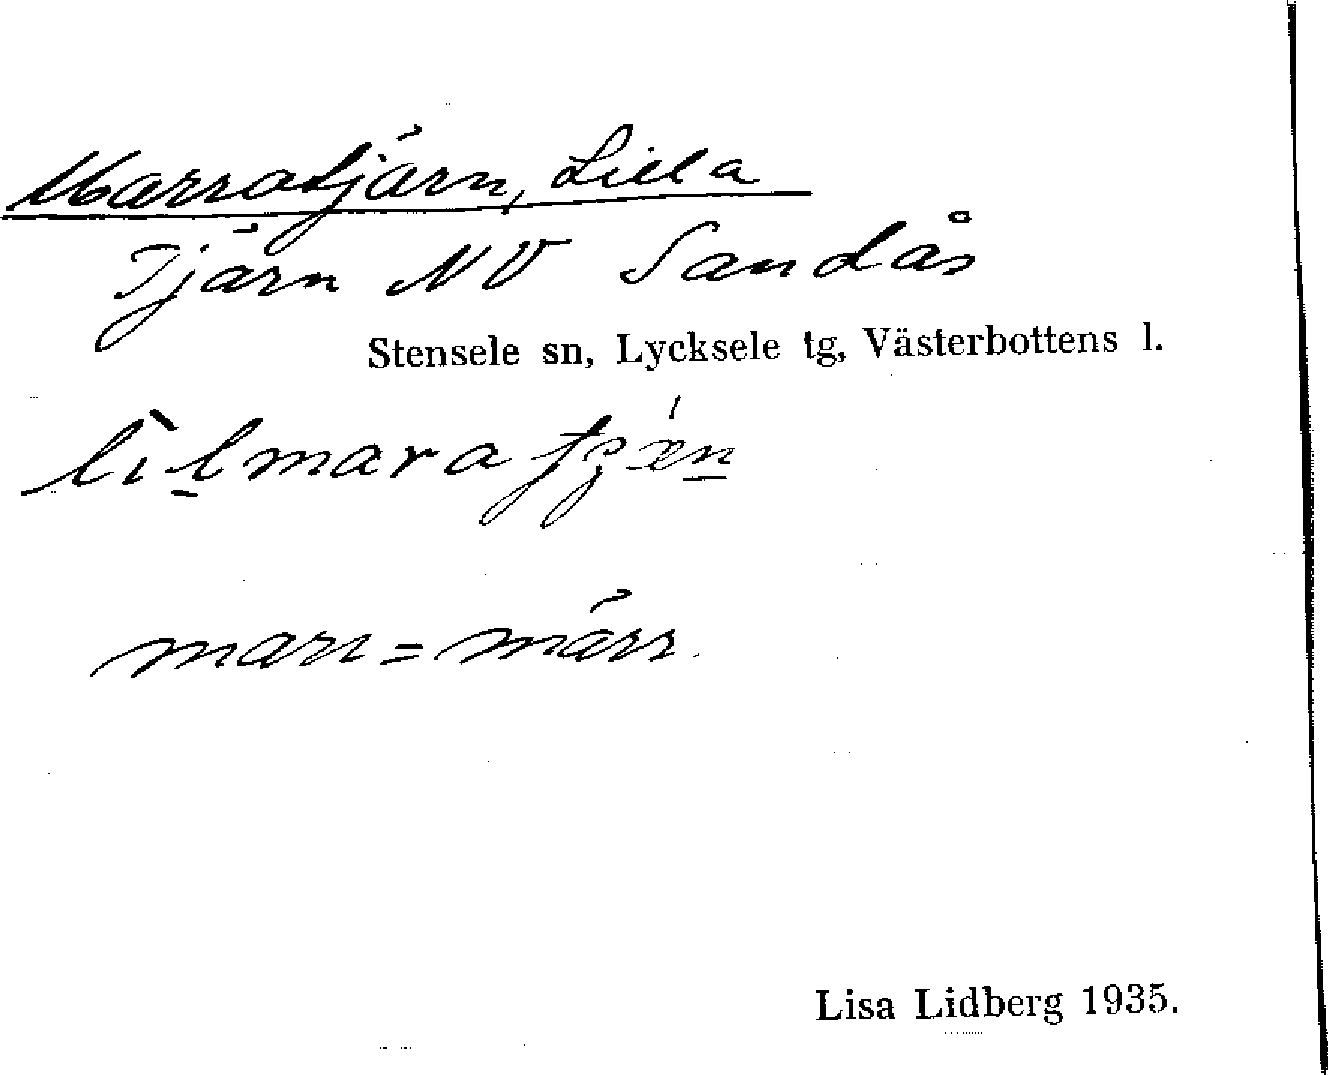 Marratjärn, Lilla
Tjärn NV Sandås
Stensele sn, Lycksele tg, Västerbottens l.
lìl̠maratʃǽn̠
marr = märr.
Lisa Lidberg 1935.